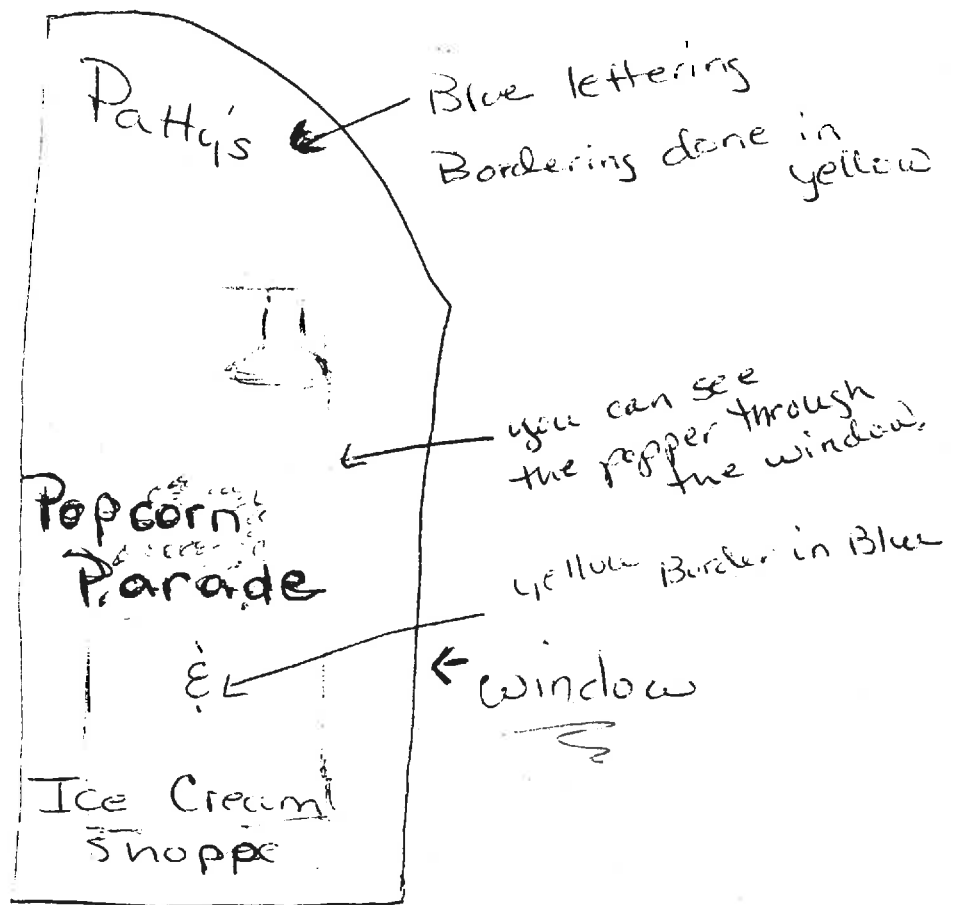 Patty's
Blue lettering
Bordering done in
yellow
you can see
the popper through
the window.
Popcorn
Parade
yellow Border in Blue
&
window
Ice Cream
Shoppe